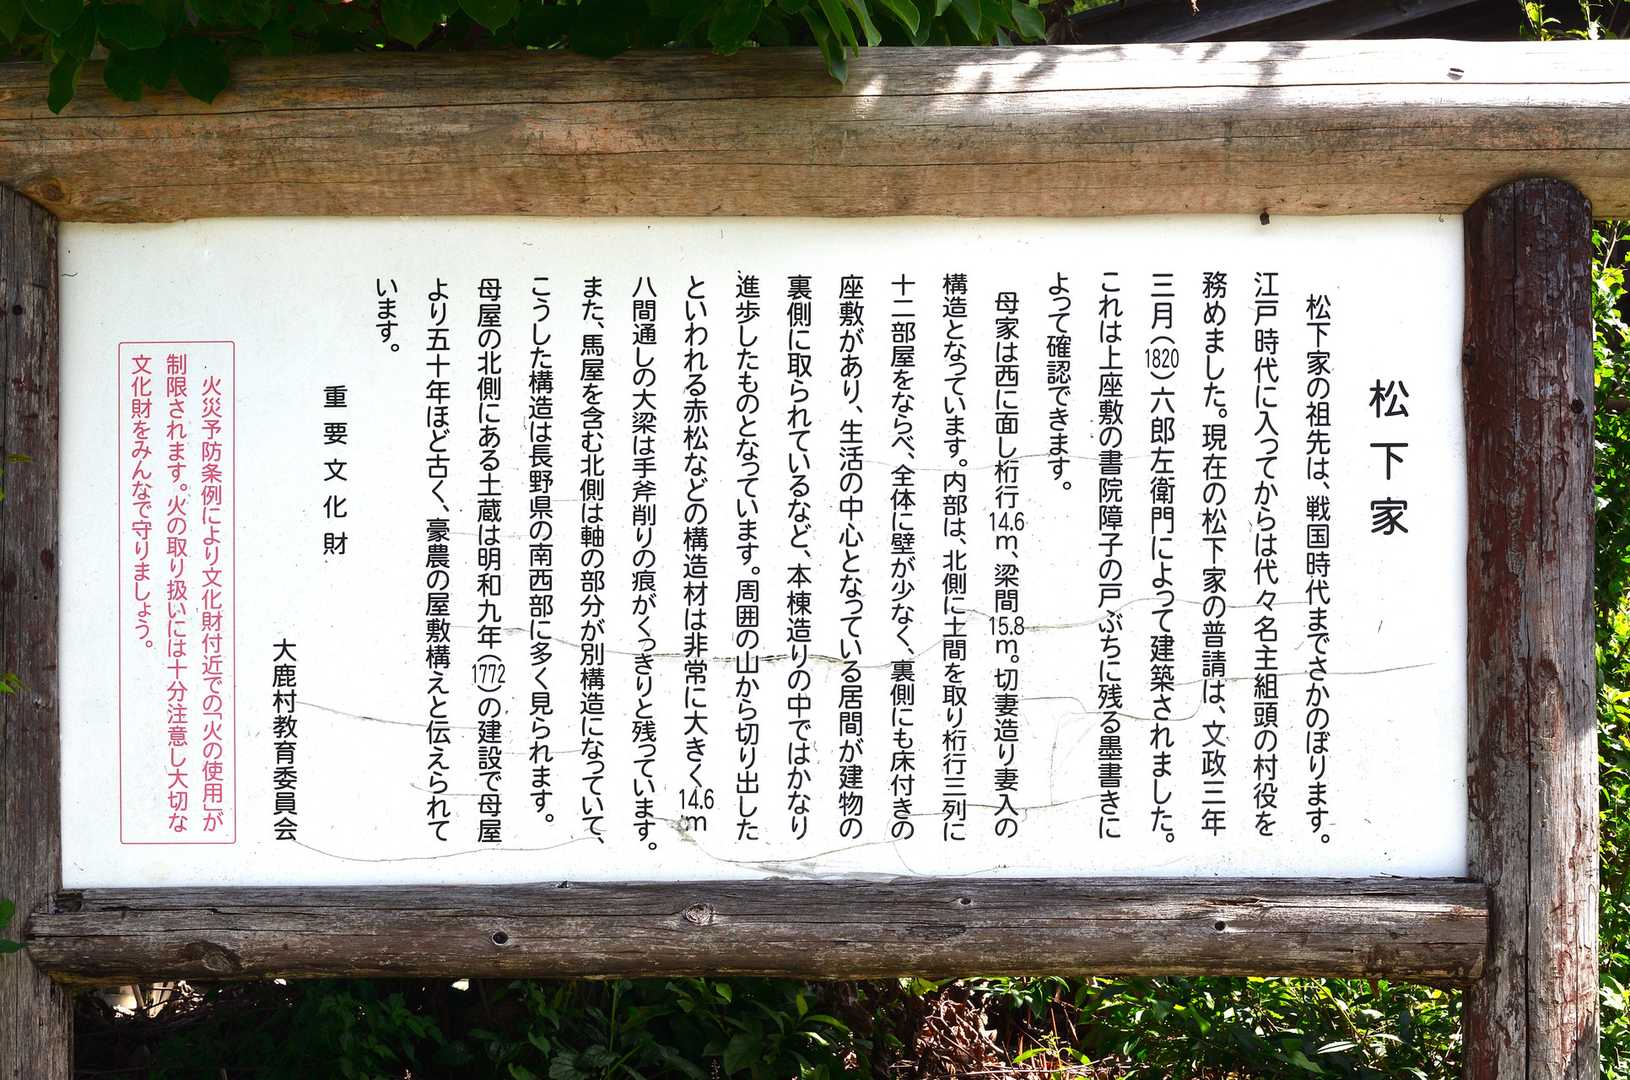 松下家
松下家の祖先は、戦国時代までさかのぼります。
江戸時代に入ってからは代々名主組頭の村役を
務めました。現在の松下家の普請は、文政三年
三月(1820)六郎左衛門によって建築されました。
これは上座敷の書院障子の戸ぶちに残る墨書きに
よって確認できます。
母家は西に面し桁行14.6m、梁間15.8m。切妻造り妻入の
構造となっています。内部は、北側に土間を取り桁行三列に
十二部屋をならべ、全体に壁が少なく、裏側にも床付きの
座敷があり、生活の中心となっている居間が建物の
裏側に取られているなど、本棟造りの中ではかなり
進歩したものとなっています。周囲の山から切り出した
といわれる赤松などの構造材は非常に大きく14.6m
八間通しの大梁は手斧削りの痕がくっきりと残っています。
また、馬屋を含む北側は軸の部分が別構造になっていて、
こうした構造は長野県の南西部に多く見られます。
母屋の北側にある土蔵は明和九年(1772)の建設で母屋
より五十年ほど古く、豪農の屋敷構えと伝えられて
います。
重要文化財
大鹿村教育委員会
火災予防条例により文化財付近での「火の使用」が
制限されます。火の取り扱いには十分注意し大切な
文化財をみんなで守りましょう。